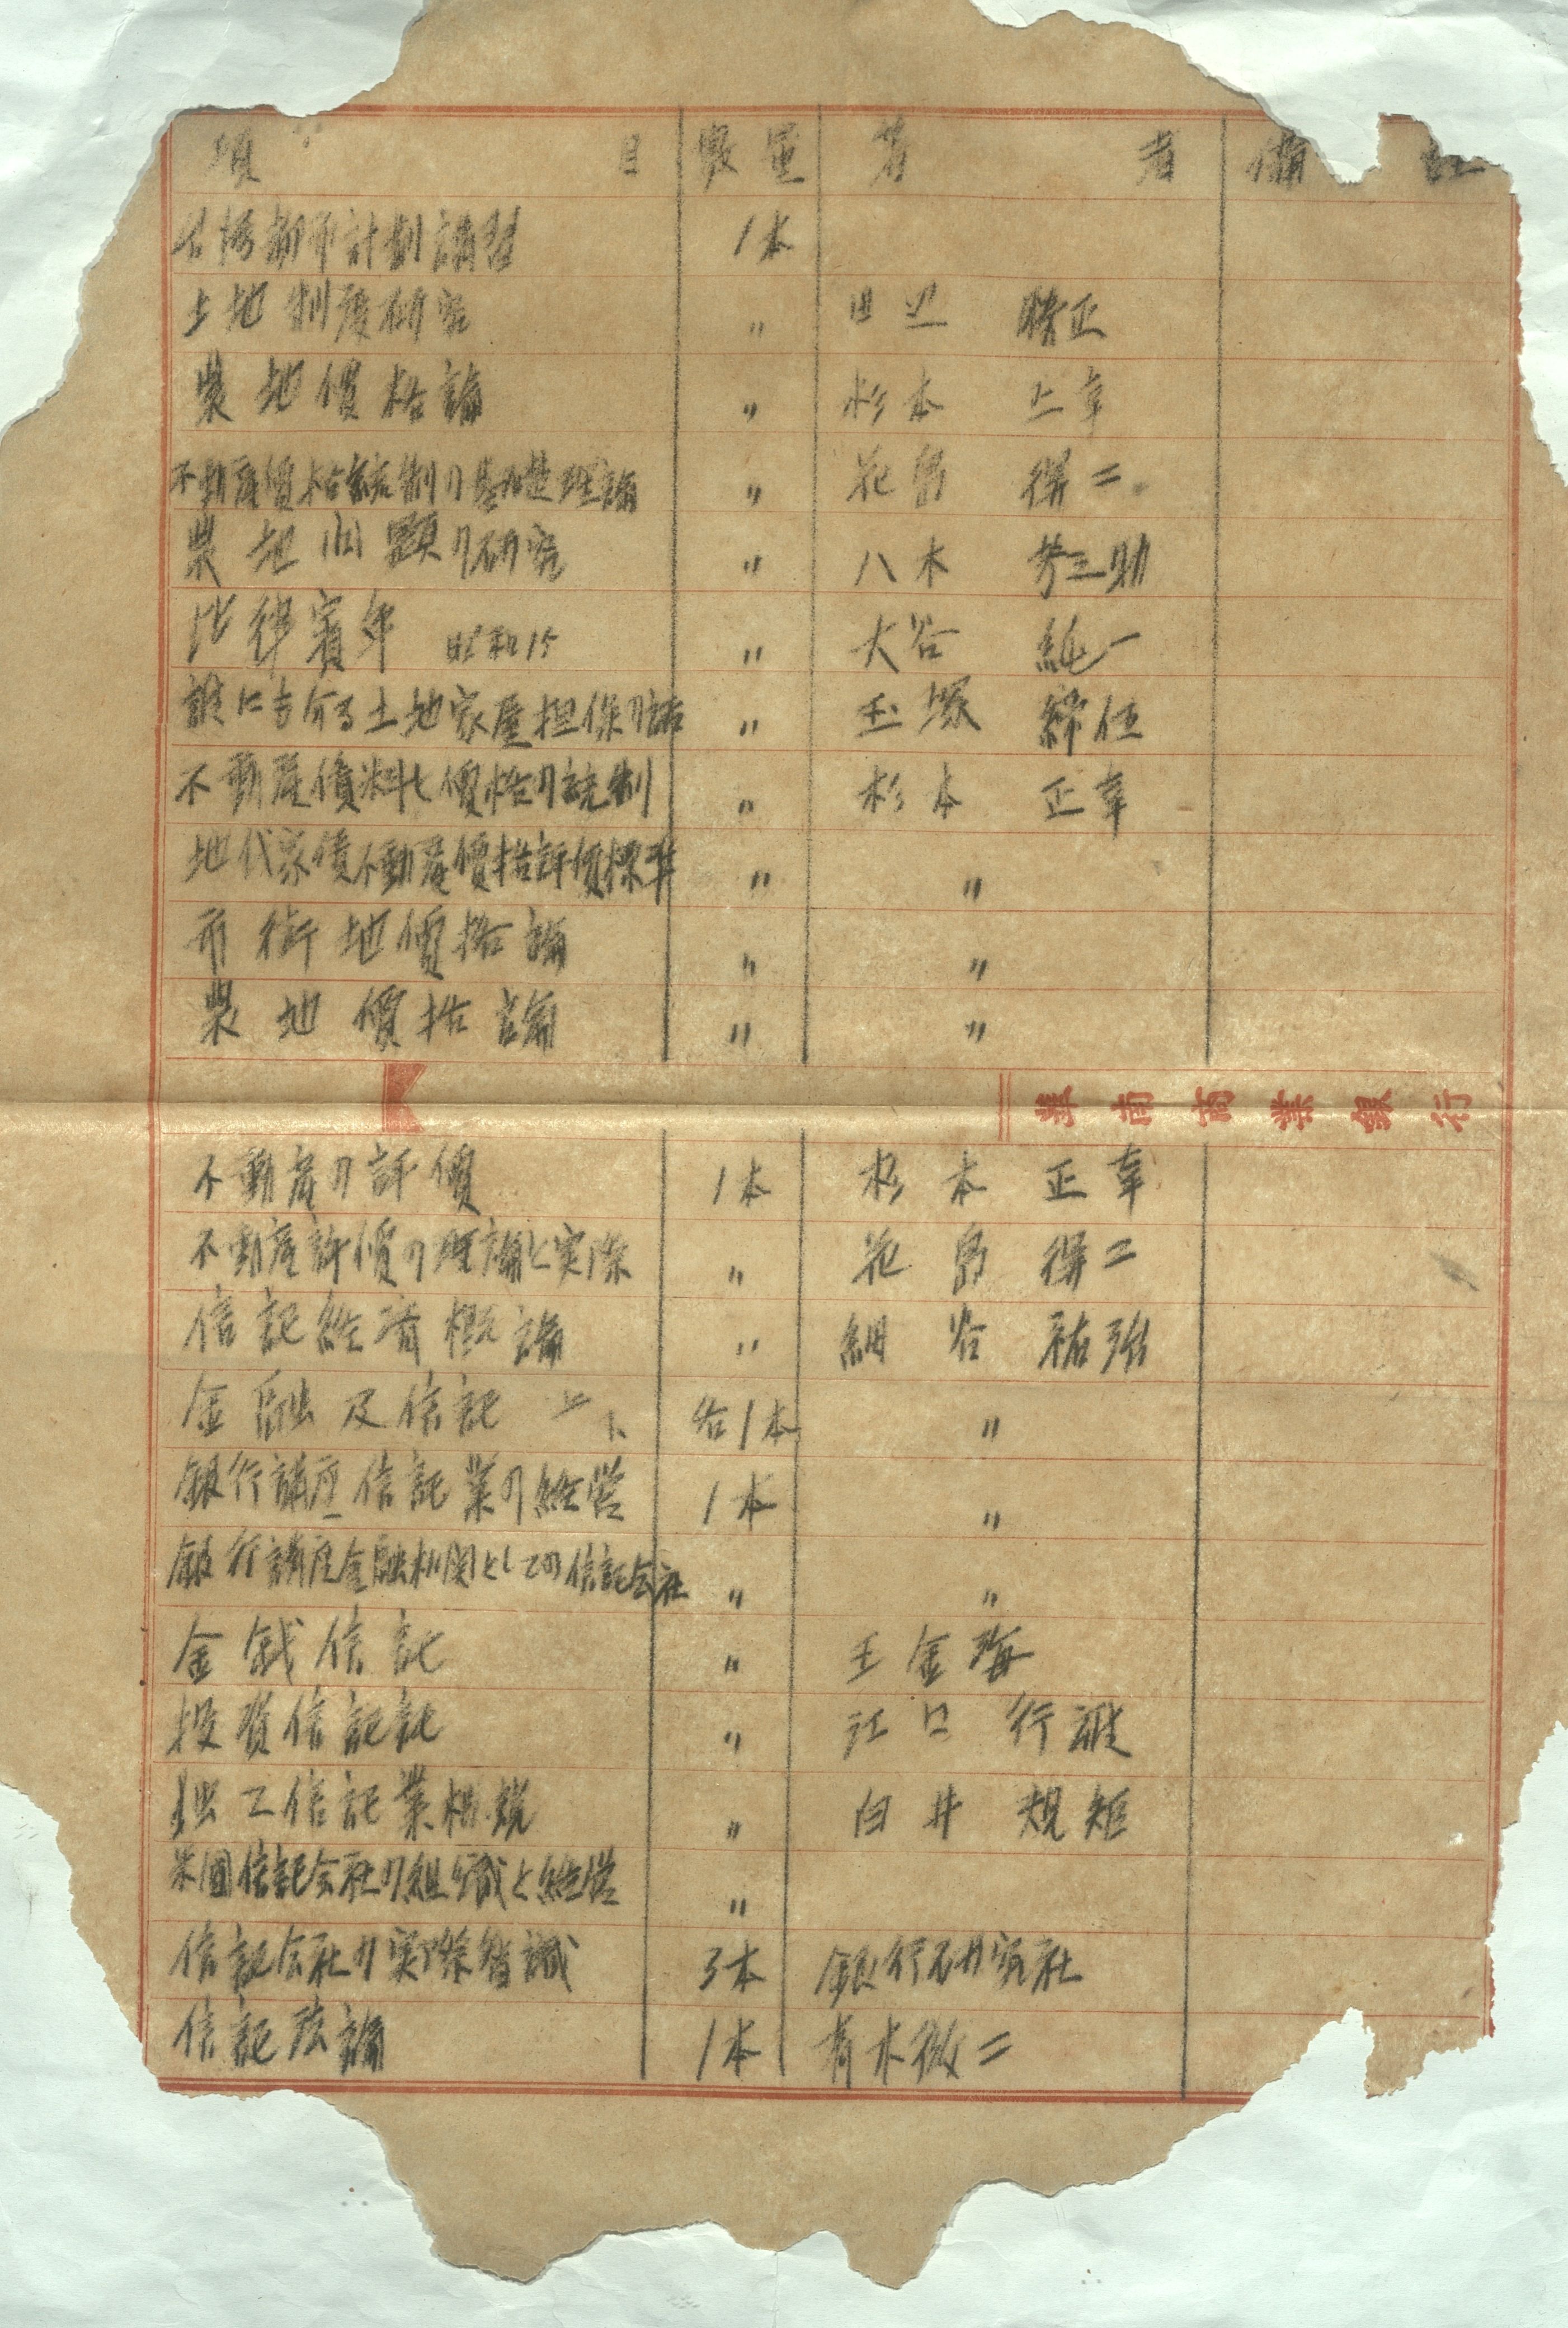 項 目 數量 著 者 備 記
台湾都市計劃講習 1本
土地制度研究 〃 田辺 勝正
農地價格論 〃 杉本 正幸
不動産價格統制ノ基礎理論 〃 花島 得二
農地問題ノ研究 〃 八木 芳之助
法律年 昭和15 〃 大谷 純一
誰にも分る土地家屋担保ノ話 〃 玉塚
不動産價料と價格ノ統制 〃 杉本 正幸
地代家價不動産價格評價標準 〃 〃
市街地價格論 〃 〃
農地價格論 〃 〃
華南商業銀行
不動産ノ評價 1本 杉本 正幸
不動産評價ノ理論と実際 〃 花島 得二
信託経済概論 〃 細谷 祐治
金融及信託 上、下 各1本 〃
銀行講座信託業ノ経営 1本 〃
銀行講座金融機関としての信託会社 〃 〃
金銭信託 〃 王金海
投資信託 〃 江口 行雄
信託業 〃 白井 規矩
米國信託会社ノ組織と経営 〃
信託会社ノ実際智識 3本 銀行研究社
信託法論 1本 青木徹二